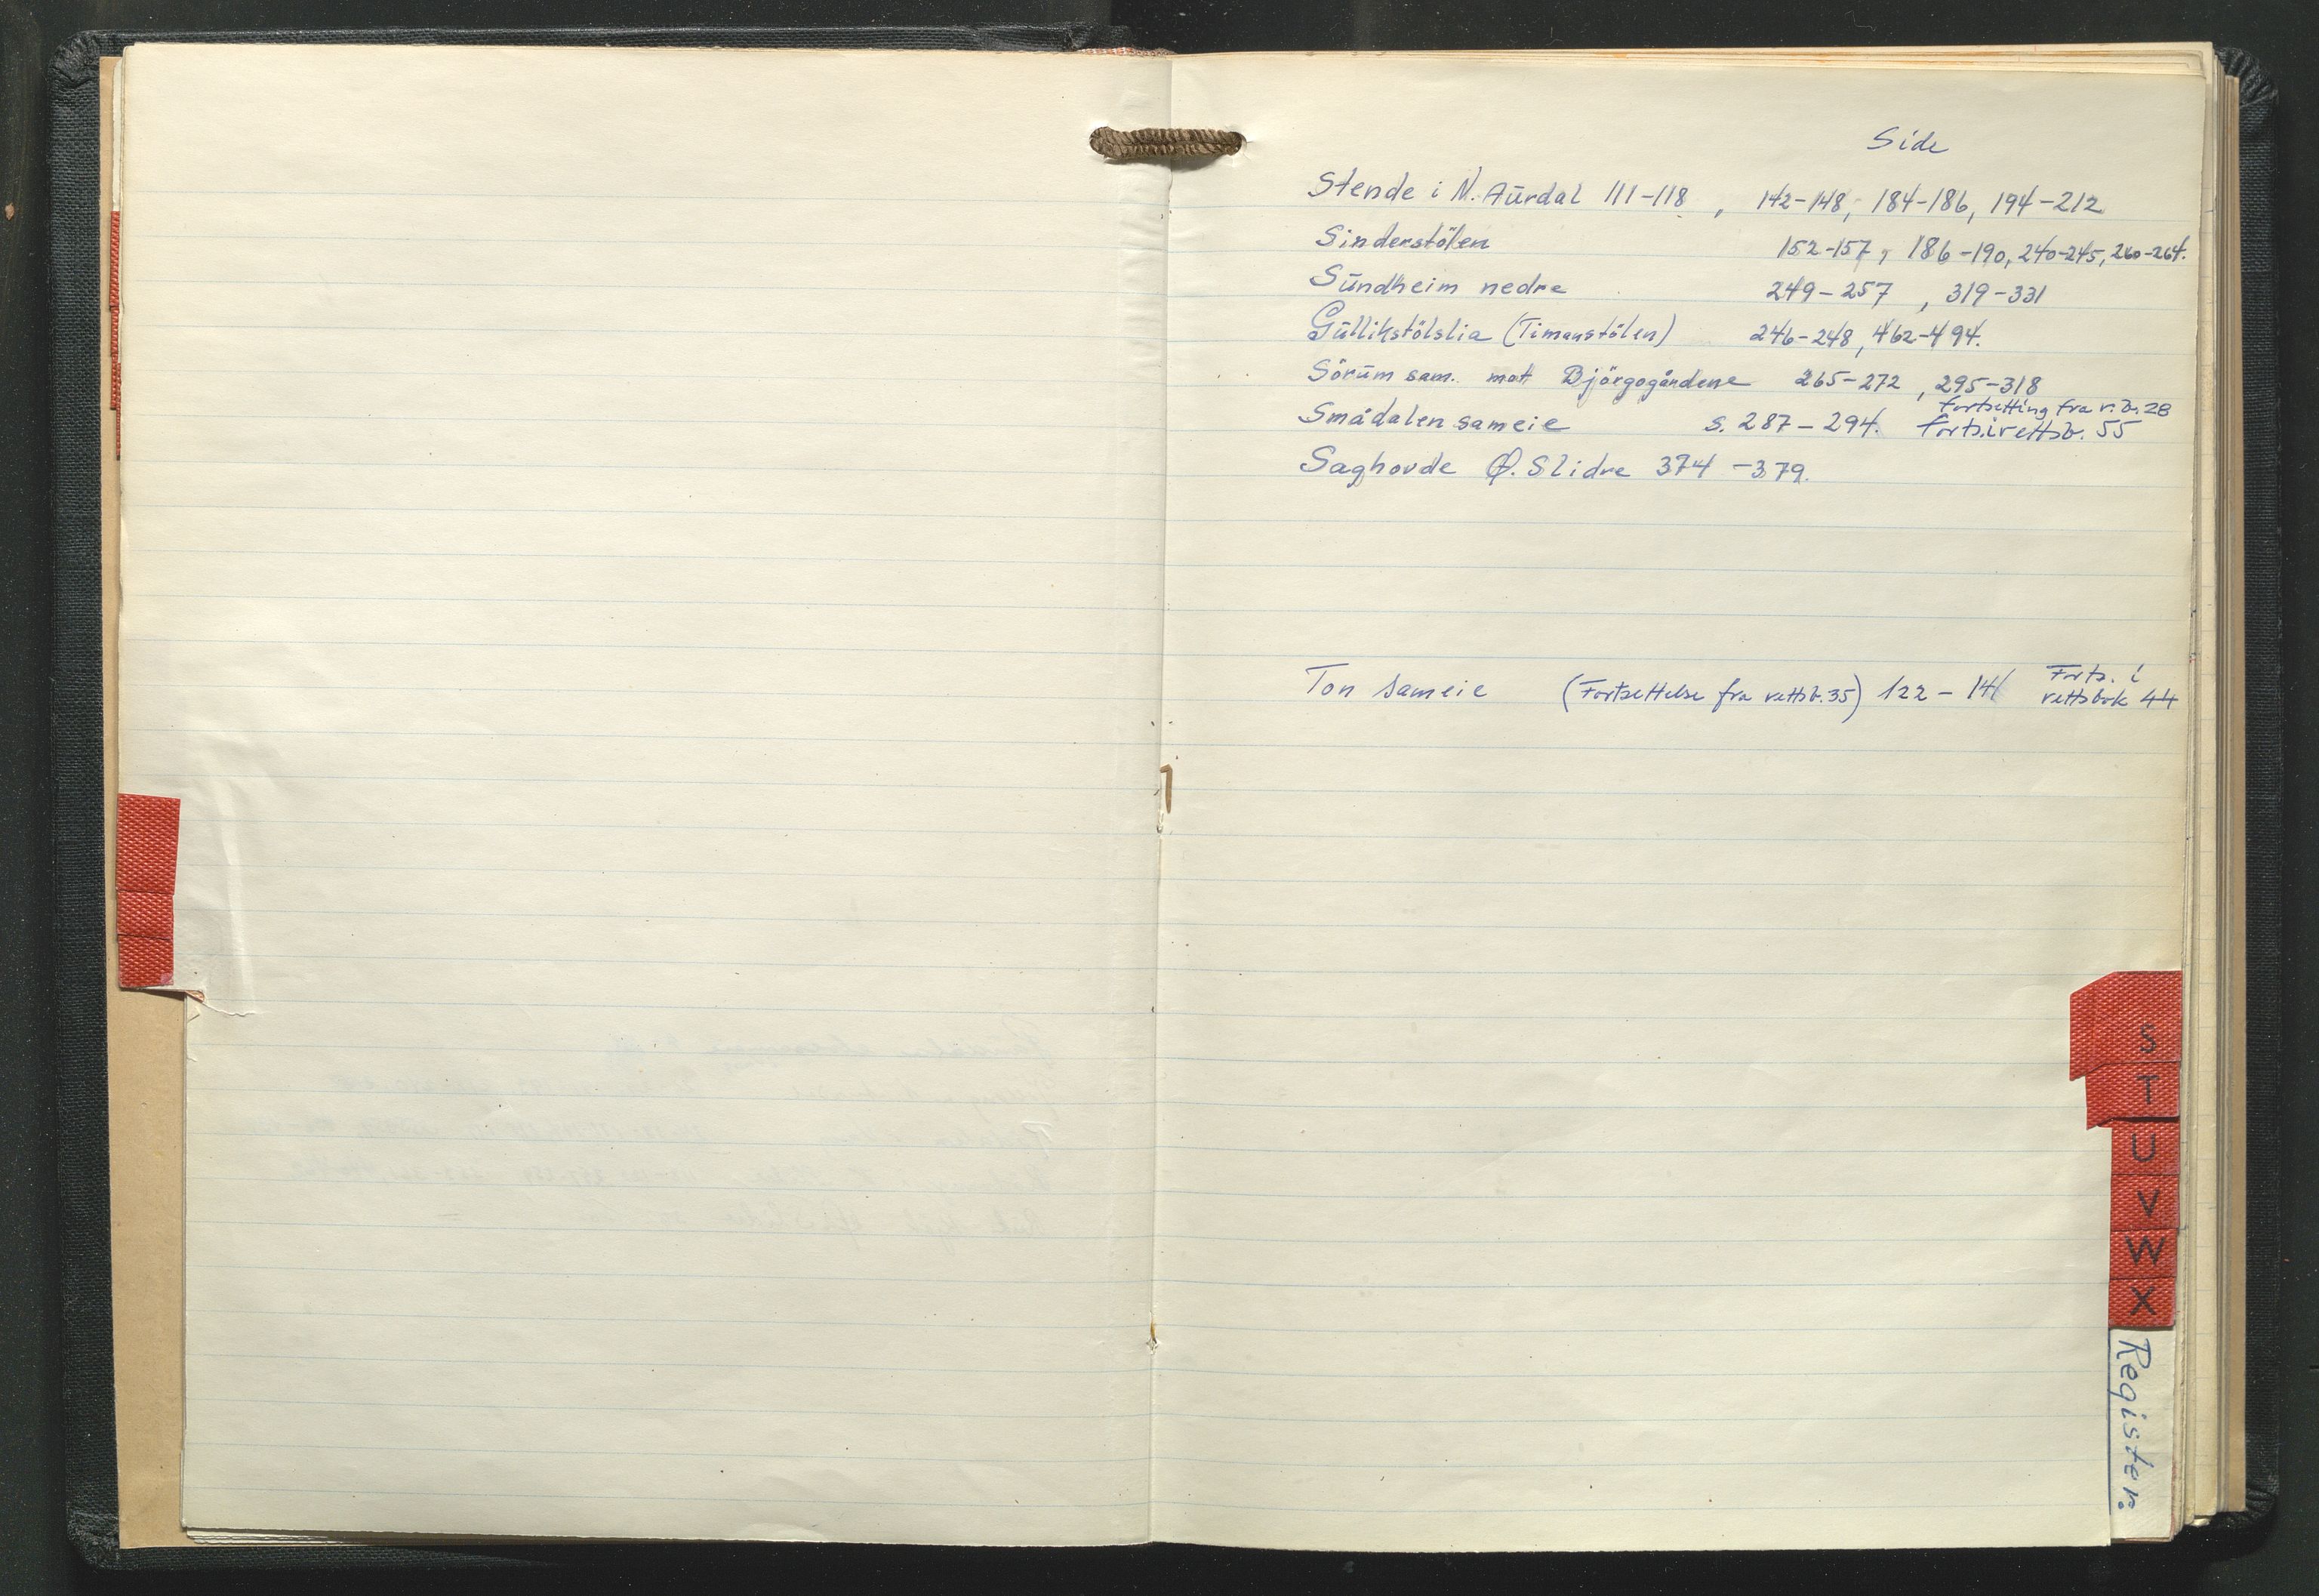 Side
Stende i N. Aurdal 111-118, 142-148, 184-186, 194-212
Sinderstölen 152-157, 186-190, 240-245, 260-264.
Sundheim nedre 249-257, 319-331
Gullikstölslia (Timanstölen) 246-248, 462-494.
Sörum sam. mot Björgogårdene 265-272, 295-318
fortsetting fra r.b. 28
Smådalen sameie s. 287-294. forts. i rettsb. 55
Saghovde Ø. Slidre 374-379.
Forts. i
Ton sameie (Fortsettelse fra rettsb. 35) 122-141 rettsbok 44
S
T
U
V
W
X
Register.